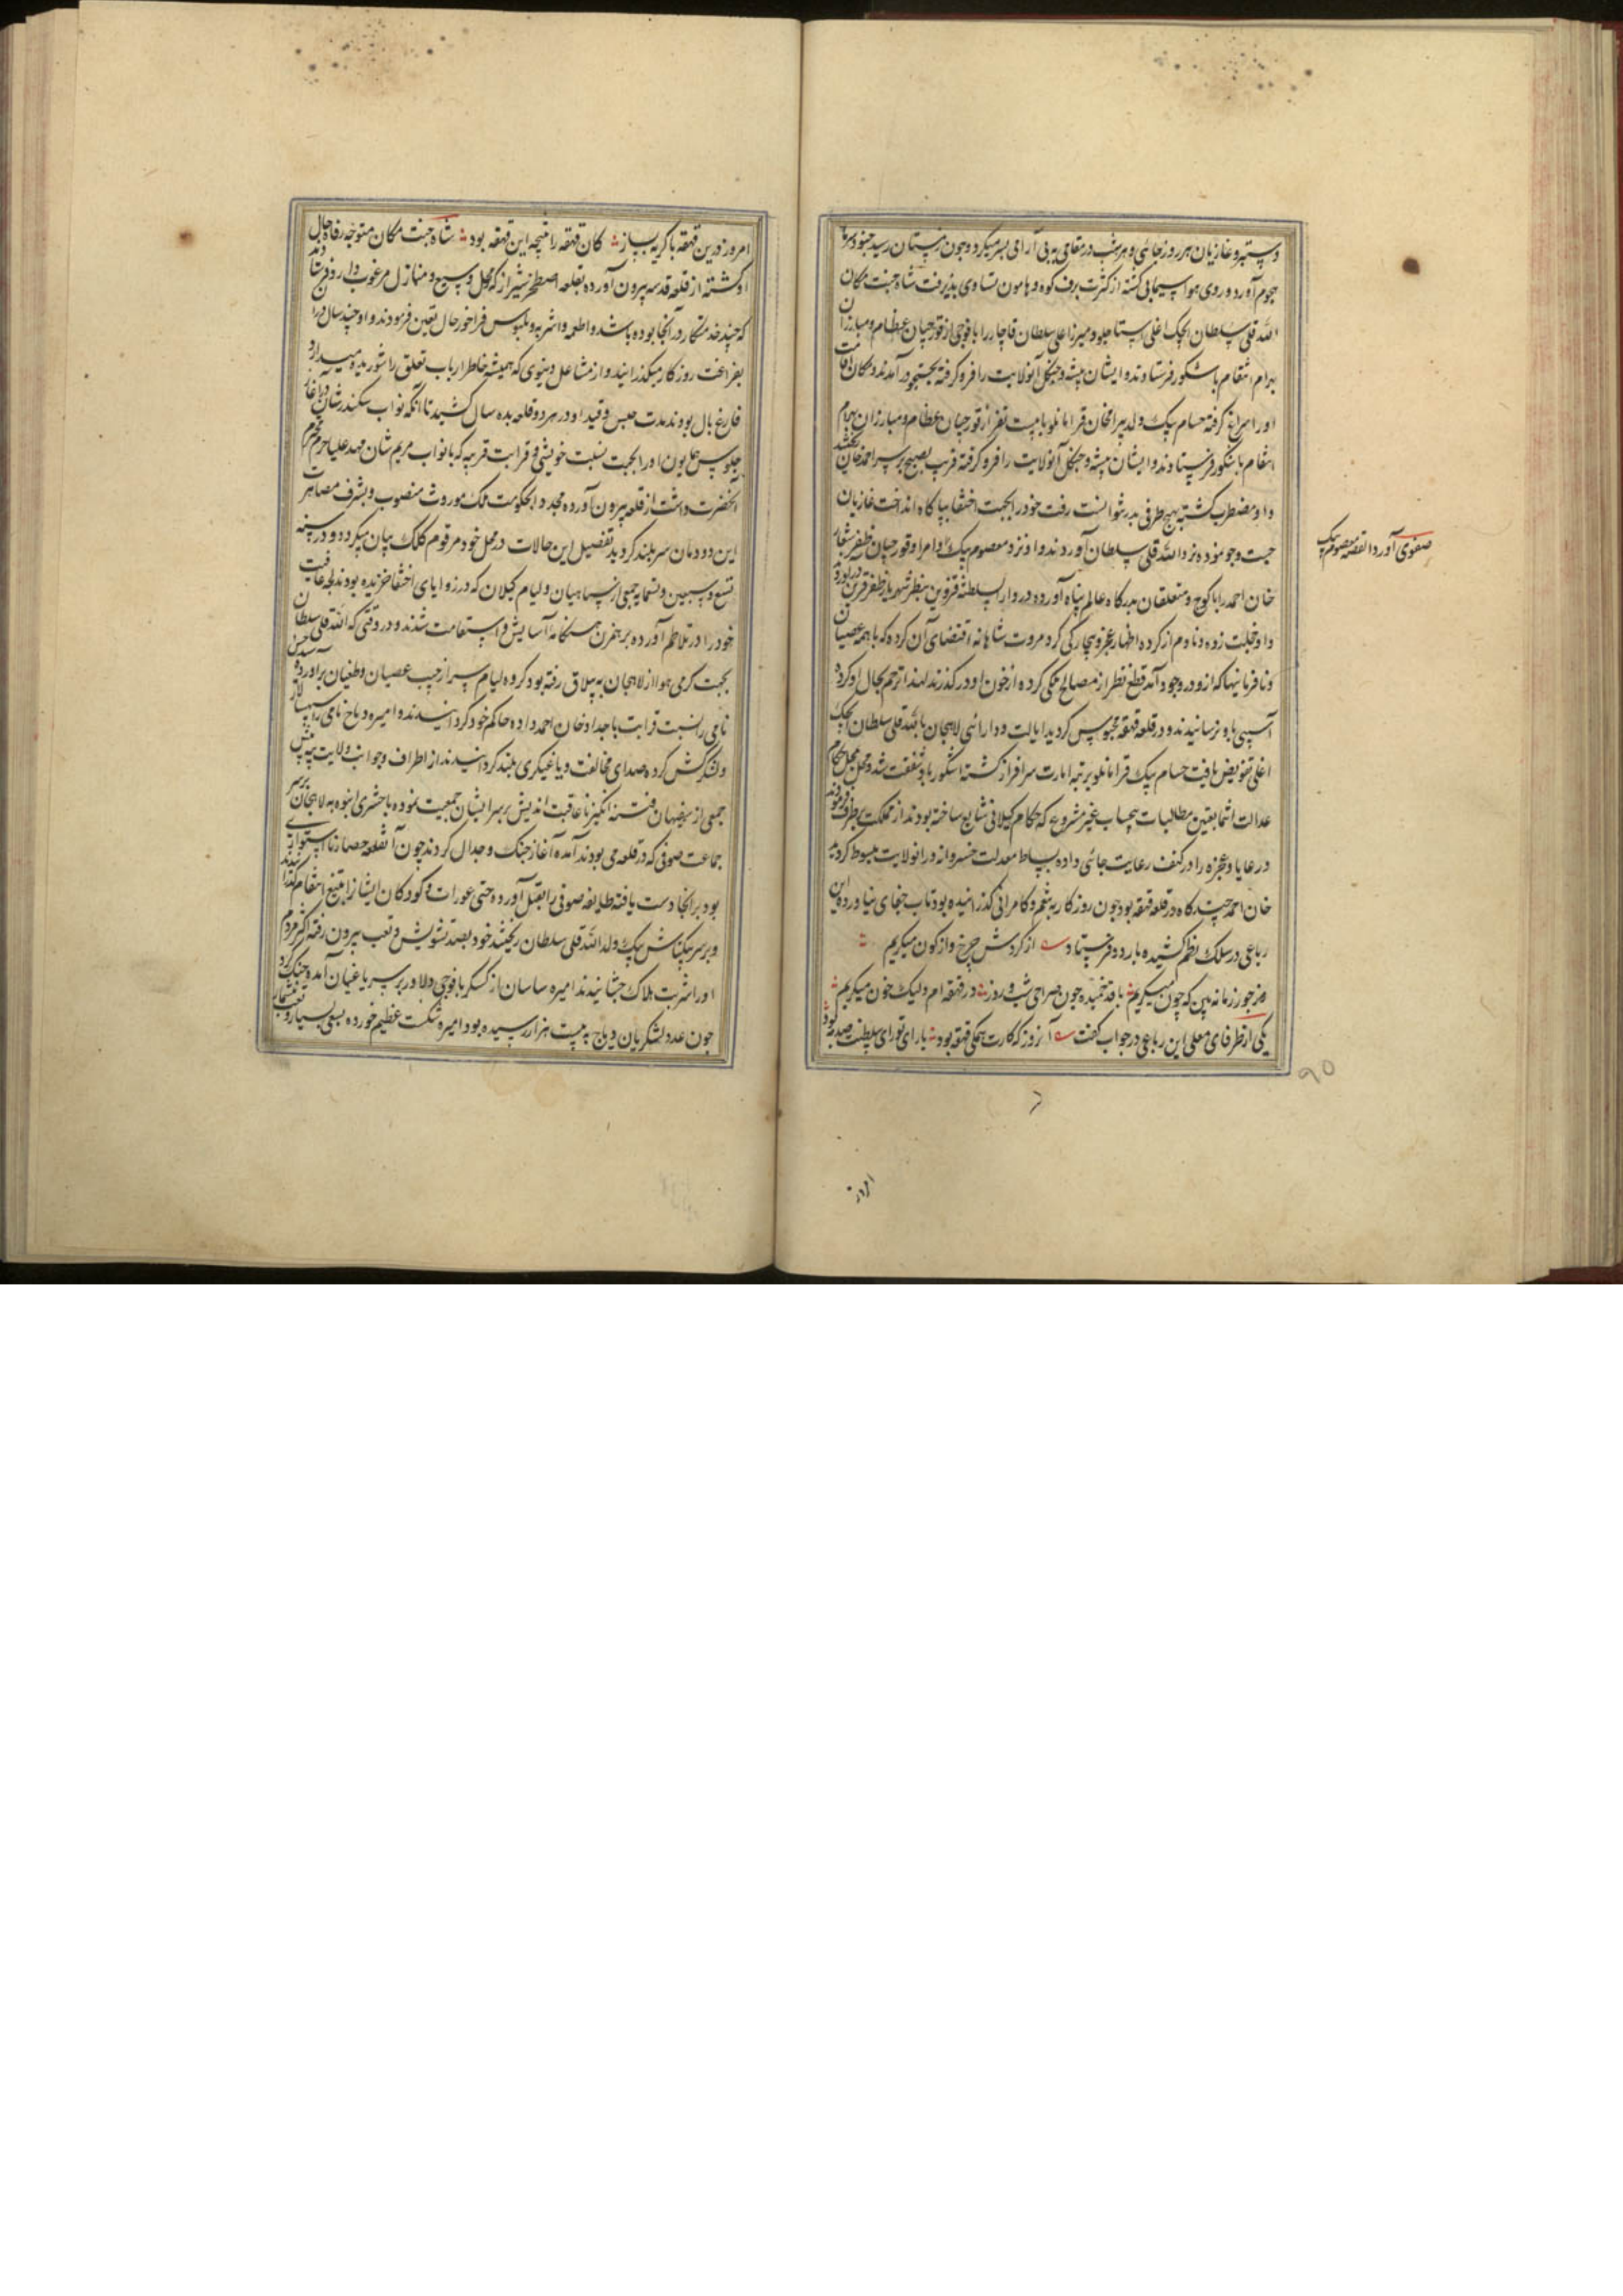 دستبرد غازیان هر روز جائی و هر شب در مقامی به بی آرامی بسر میکرد و چون زمستان رسید جنود سرما
هجوم آورد و روی هوا سیمابی گشته از کثرت برف کوه و هامون تساوی پذیرفت شاه جنت مکان
الله قلی سلطان ایچک اغلی استاجلو و میرزا علی سلطان قاجار را با فوجی از قورچیان عظام و مبارزان
بهرام انتقام باشکور فرستادند و ایشان بیشه و جنگل آنولایت را فرو گرفته بجستجو در آمدند و مکان اقامت
او را سراغ گرفته حسام بیک ولد بیرامخان قرامانلو با بیست نفر از قورچیان عظام و مبارزان بهرام
انتقام باشکور فرستادند و ایشان بیشه و جنگل آنولایت را فرو گرفته قریب بصبح بر سر احمدخان ریختند
و او مضطرب گشته بهیچ طرفی بدر نتوانست رفت خود را بجهت اختفا بپا کاه انداخت غازیان
جست و جو نموده نزد الله قلی سلطان آوردند و او نزد معصوم بیک و امرا و قورچیان ظفر شعار
صفوی آورد القصه معصوم بیک
خان احمد را با کوچ و متعلقان بدرگاه عالم پناه آورده در دار السلطنه قزوین بنظر شهریار ظفر قرین در آورد
و او خجلت زده و نادم از کرده اظهار عجز و بیچارگی کرد مروت شاهانه اقتضای آن کرده که با همه عصیان
و نافرمانیها که از و در وجود آمد قطع نظر از مصالح ملکی کرده از خون او در گذرند لهذا ترحم بحال او کرده
آسیبی باو نرسانیدند و در قلعه قهقهه محبوس گردید ایالت و دارائی لاهیجان بالله قلی سلطان ایچک
اغلی تفویض یافت حسام بیک قرامانلو برتبه امارت سرافراز گشته اشکور باو شفقت شد و محل احکام
عدالت انتما بتعین مطالبات بیحساب غیر مشروع که حکام گیلانی شایع ساخته بودند از مملکت بر طرف فرمودند
و رعایا و عجزه را در کنف رعایت جائی داده بساط معدلت خسروانه در انولایت مبسوط گردید
خان احمد چند گاه در قلعه قهقهه بود چون روزگار به تنعم و کامرانی گذرانیده بود تاب جفای نیاورده این
رباعی در سلک نظم کشیده باردو فرستاد از گردش چرخ واژگون میگریم
وز جور زمانه بین که چون میگریم با قد خمیده چون صراحی شب و روز در قهقهه ام ولیک خون میگریم
یکی از ظرفای معلی این رباعی در جواب گفت آنروز که کارت همگی قهقهه بود با رای تو رای سلطنت صد مه بود
۹۵
امروز
امروز درین قهقهه با گریه بساز کان قهقهه را نتیجه این قهقهه بود شاه جنت مکان متوجه رفاه حال
او گشته از قلعه قهقهه بیرون آورده بقلعه اصطخر شیراز که محل وسیع و منازل مرغوب دارد فرستادند
که چند خدمتکار در آنجا بوده باشد و اطعمه و اشربه و ملبوس فراخور حال تعین فرمودند و او چند سال در آن
بفراغت روزگار میگذرانید و از مشاغل دنیوی که همیشه خاطر ارباب تعلق را شوریده میدارد
فارغ بال بود مدت حبس و قید او در هر دو قلعه بده سال کشید تا آنکه نواب سکندر شان در آغاز
جلوس همایون او را بجهت نسبت خویشی و قرابت قریبه که با نواب مریم شان مهد علیا حرم محترم
آنحضرت داشت از قلعه بیرون آورده مجددا بحکومت ملک موروث منصوب و بشرف مصاهرت
این دودمان سربلند گردید تفصیل این حالات در محل خود مرقوم کلک بیان میگردد و در سنه
تسع و سبعین و تسعمایه جمعی از سپاهیان و لیام گیلان که در زوایای اختفا خزیده بودند لجه عافیت
خود را در تلاطم آورده بر همزن هنگامه آسایش و استقامت شدند و در وقتی که الله قلی سلطان
بجهت گرمی هوا از لاهیجان به ییلاق رفته بود گروه لیام سر از جیب عصیان و طغیان برآورده سید حسن
نامی را نسبت قرابت باجداد خان احمد داده حاکم خود گردانیدند و امیره دباج نامی را سپهسالار
و لشکرکش کرده صدای مخالفت و یاغیگری بلند گردانیدند از اطراف و جوانب ولایت پیه پیش
جمعی از سفیهان فتنه انگیز ناعاقبت اندیش بر سر ایشان جمعیت نموده با حشری انبوه به لاهیجان بر سر
جماعت صوفی که در قلعه می بودند آمده آغاز جنگ و جدال کردند چون آنقلعه حصار نا استواری
بود بر آنجا دست یافته طایفه صوفی را بقتل آورده حتی عورات و کودکان ایشانرا بتیغ انتقام گذرانیدند
و بر سر بکتاش بیک ولد الله قلی سلطان ریختند خود بصد تشویش و تعب بیرون رفته اکثر مردم
او را شربت هلاک چشانیدند امیره ساسان از کسکر با فوجی دلاور بر سر یاغیان آمده جنگ کرد
چون عدد لشکریان دباج به بیست هزار رسیده بود امیره شکست عظیم خورده بسعی بسیار و تعب بیشمار